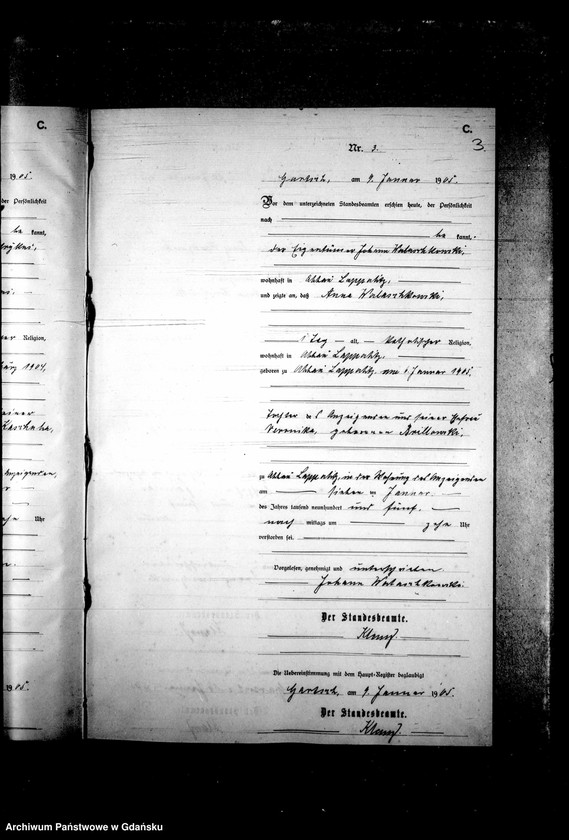 C.
C.
3.
Nr. 3.
1905.
am 9. Januar 1905.
der Persönlichkeit
Vor dem unterzeichneten Standesbeamten erschien heute, der Persönlichkeit
nach
be kannt,
be kannt,
der Eigentümer Johann
wohnhaft in Abbau Lappalitz,
und zeigte an, daß Anna
er Religion,
1 Tag alt, katholischer Religion,
wohnhaft in Abbau Lappalitz,
März 1904,
geboren zu Abbau Lappalitz am 6 Januar 1905.
Tochter des Anzeigenden und seiner Ehefrau
Veronika, geborenen
Anzeigenden,
zu Abbau Lappalitz, in der Wohnung des Anzeigenden
am sieben ten Januar
des Jahres tausend neunhundert und fünf
Uhr
nach mittags um zehn Uhr
verstorben sei.
Vorgelesen, genehmigt und unterschrieben
Johann
Der Standesbeamte.
Die Uebereinstimmung mit dem Haupt-Register beglaubigt
1905.
am 9. Januar 1905.
Der Standesbeamte.
Archiwum Państwowe w Gdańsku